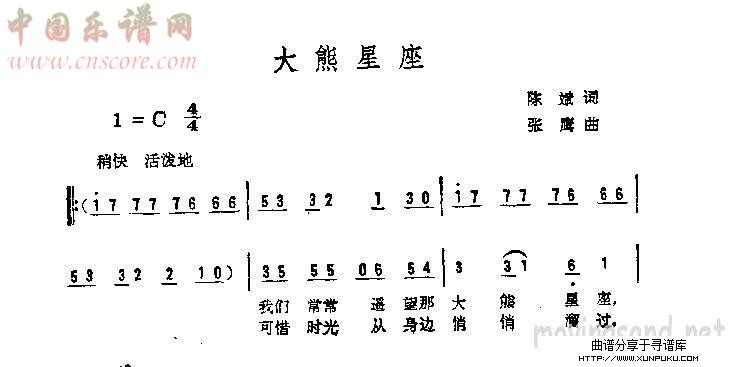 中国乐谱网
www.cnscore.com
大熊星座
1=C 4/4
陈斌词
张鹰曲
稍快 活泼地
(i7 77 76 66 | 53 32 1 30 | i7 77 76 66 |
53 32 2 10) | 35 55 06 54 | 3 31 6 1 |
我们 常常 遥望那 大 熊 星 座,
可惜 时光 从身边 悄 悄 溜 过,
movingsand.net
曲谱分享于寻谱库
HTTP://WWW.XUNPUKU.COM